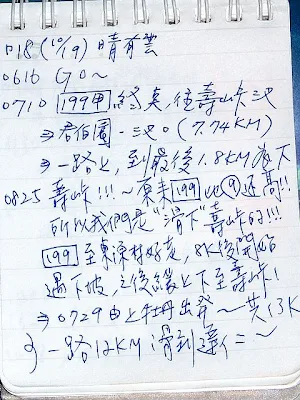 018 (10/19) 晴有雲
0616 GO~
0710 199甲 終點，往壽峠 3K
⇒ 君伯園 - 3K。(7.74KM)
⇒ 一路上，到最後1.8KM 為下
0825 壽峠!!! ~ 原來 199 比 ⑨ 還高!!
所以我們是"滑下"壽峠的!!!
199 至東源村好走，8K後開始
遇下坡，之後緩上下至壽峠!
⇒ 0729 由上牡丹出發 ~ 共13K
一路12KM 滑到達仁 = ~